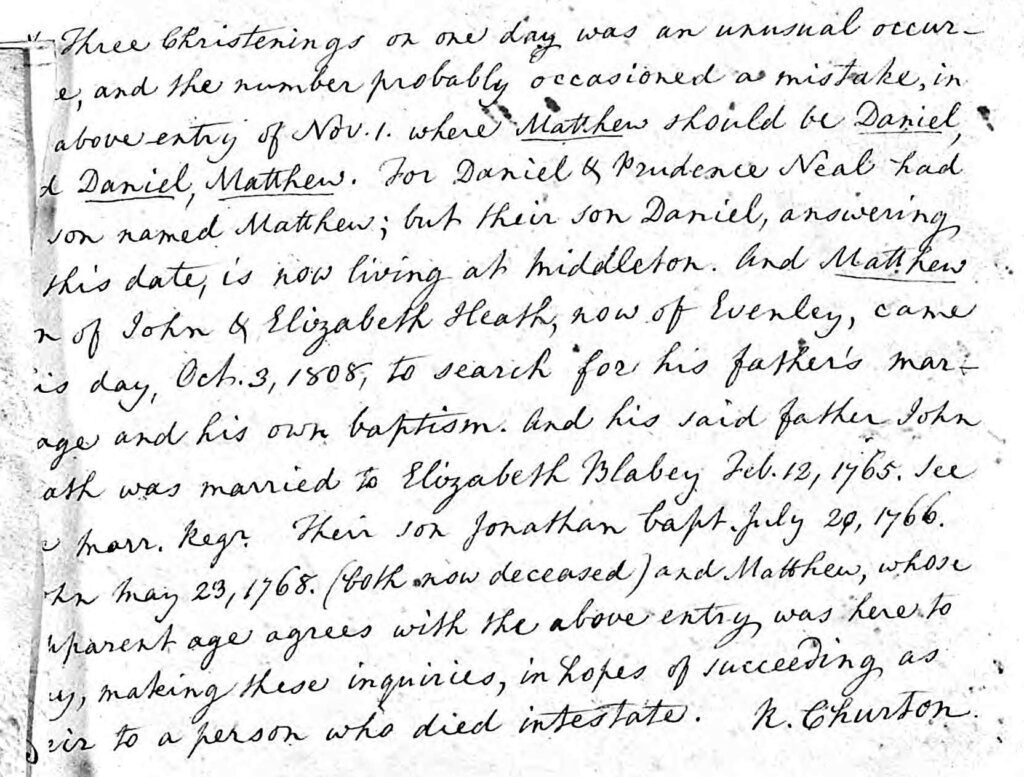 Three Christenings on one day was an unusual occur-
e, and the number probably occasioned a mistake, in
above entry of Nov. 1. where Matthew should be Daniel,
d Daniel, Matthew. For Daniel & Prudence Neal had
son named Matthew; but their son Daniel, answering
this date, is now living at Middleton. And Matthew
n of John & Elizabeth Heath, now of Evenley, came
is day, Oct. 3, 1808, to search for his father's mar-
age and his own baptism. And his said father John
ath was married to Elizabeth Blabey Feb. 12, 1765. See
e Marr. Regr. Their son Jonathan bapt. July 20, 1766.
ohn May 23, 1768. (both now deceased) and Matthew, whose
apparent age agrees with the above entry was here to
ay, making these inquiries, in hopes of succeeding as
eir to a person who died intestate. R. Churton.